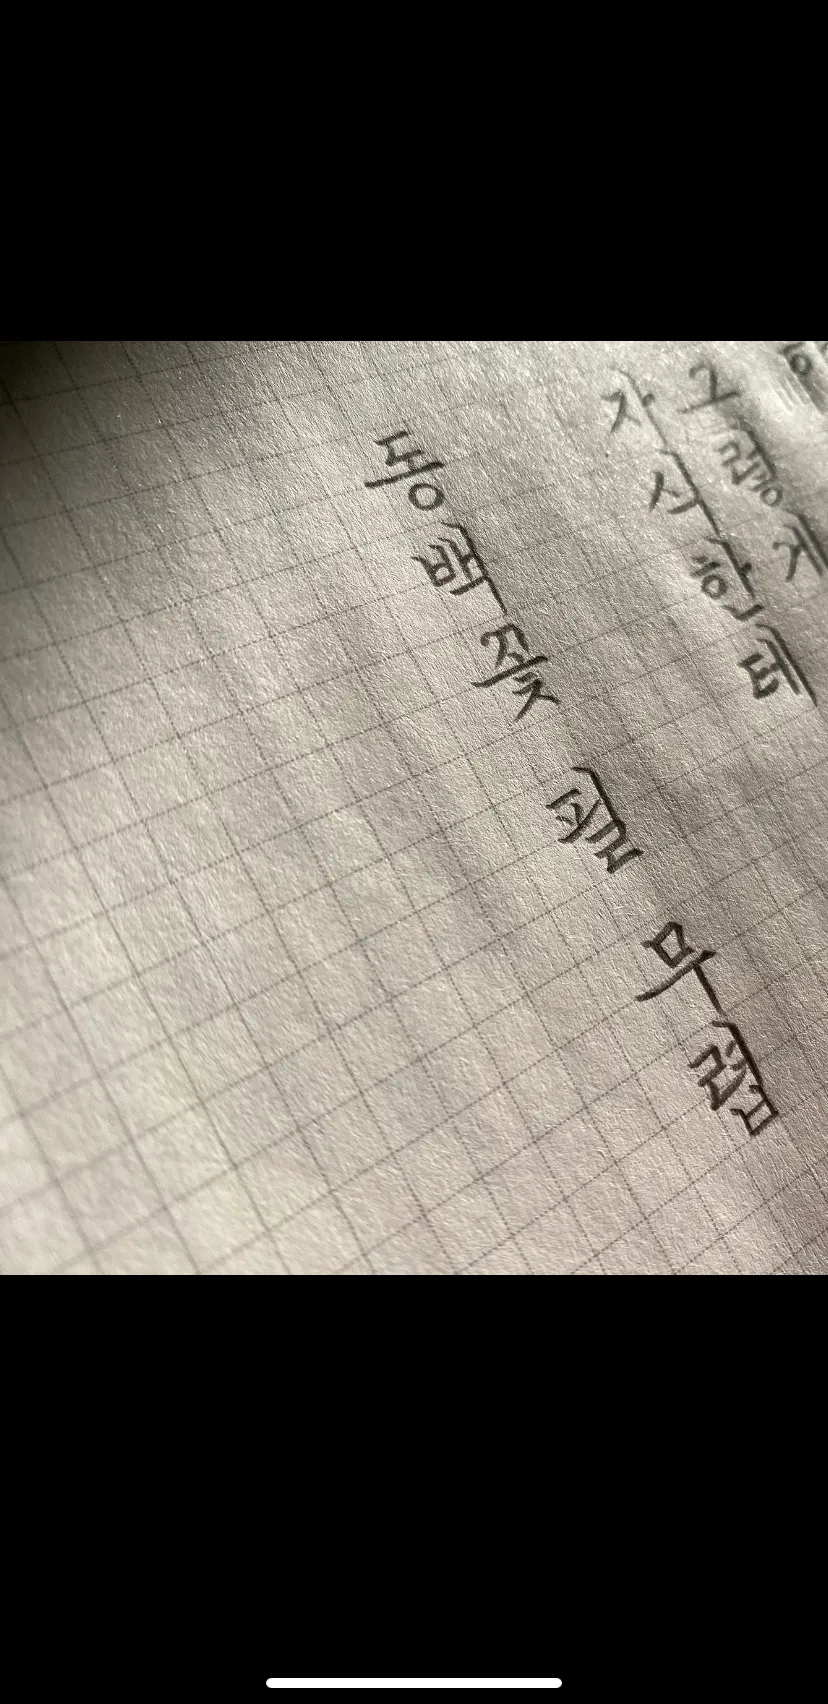 그렇게
자식한테
동백꽃 필 무렵